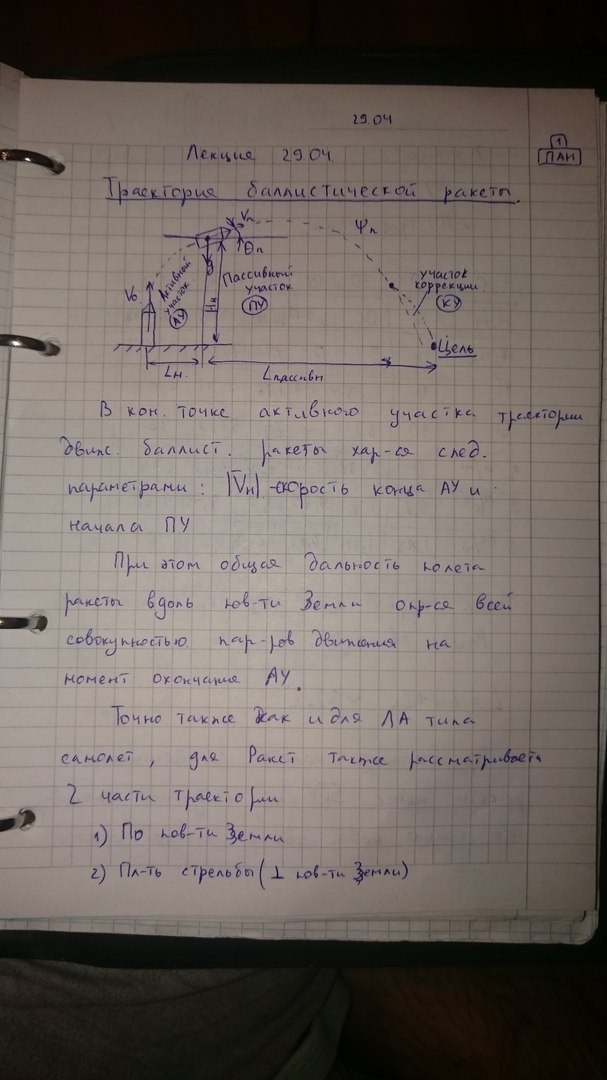 29.04
1
ПАН
Лекция 29.04.
Траектория баллистической ракеты.
Vп
Ψп
Θп
V0
Активный участок
АУ
Hк
Пассивный участок
ПУ
участок коррекции
КУ
Цель
Lн.
Lпассивн
В кон. точке активного участка траектории
движ. баллист. ракеты хар-ся след.
параметрами: |V̅н| - скорость конца АУ и
начала ПУ
При этом общая дальность полета
ракеты вдоль пов-ти Земли опр-ся всей
совокупностью пар-ров движения на
момент окончания АУ.
Точно также как и для ЛА типа
самолет, для Ракет также рассматривается
2 части траектори
1) По пов-ти Земли
2) Пл-ть стрельбы (⊥ пов-ти Земли)